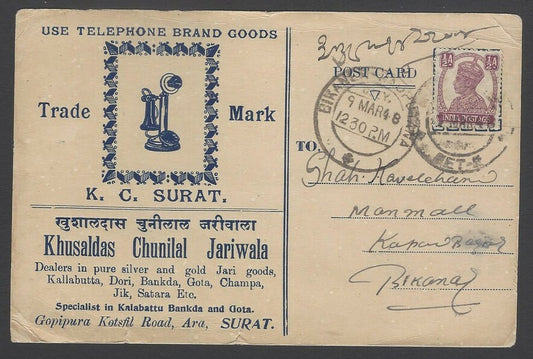 USE TELEPHONE BRAND GOODS
Trade Mark
K. C. SURAT.
खुशालदास चुनीलाल जरीवाला
Khusaldas Chunilal Jariwala
Dealers in pure silver and gold Jari goods,
Kallabutta, Dori, Bankda, Gota, Champa,
Jik, Satara Etc.
Specialist in Kalabattu Bankda and Gota.
Gopipura Kotsfil Road, Ara, SURAT.
POST CARD
½A ½A
INDIA POSTAGE
9 MAR 48
12 30 PM
TO
Shah.
Manmall
Bikaner